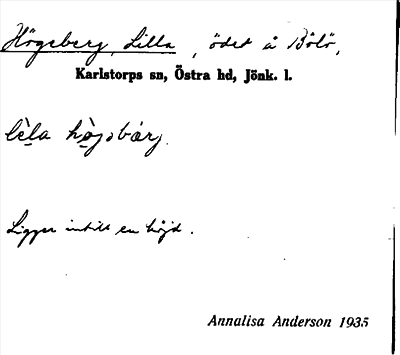 Högsberg, Lilla, ödet å Bölö,
Karlstorps sn, Östra hd, Jönk. l.
lèla
Ligger intill en höjd.
Annalisa Anderson 1935